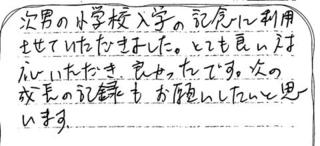 次男の小学校入学の記念に利用
させていただきました。とても良い対
応いただき、良かったです。次の
成長の記録もお願いしたいと思
います。